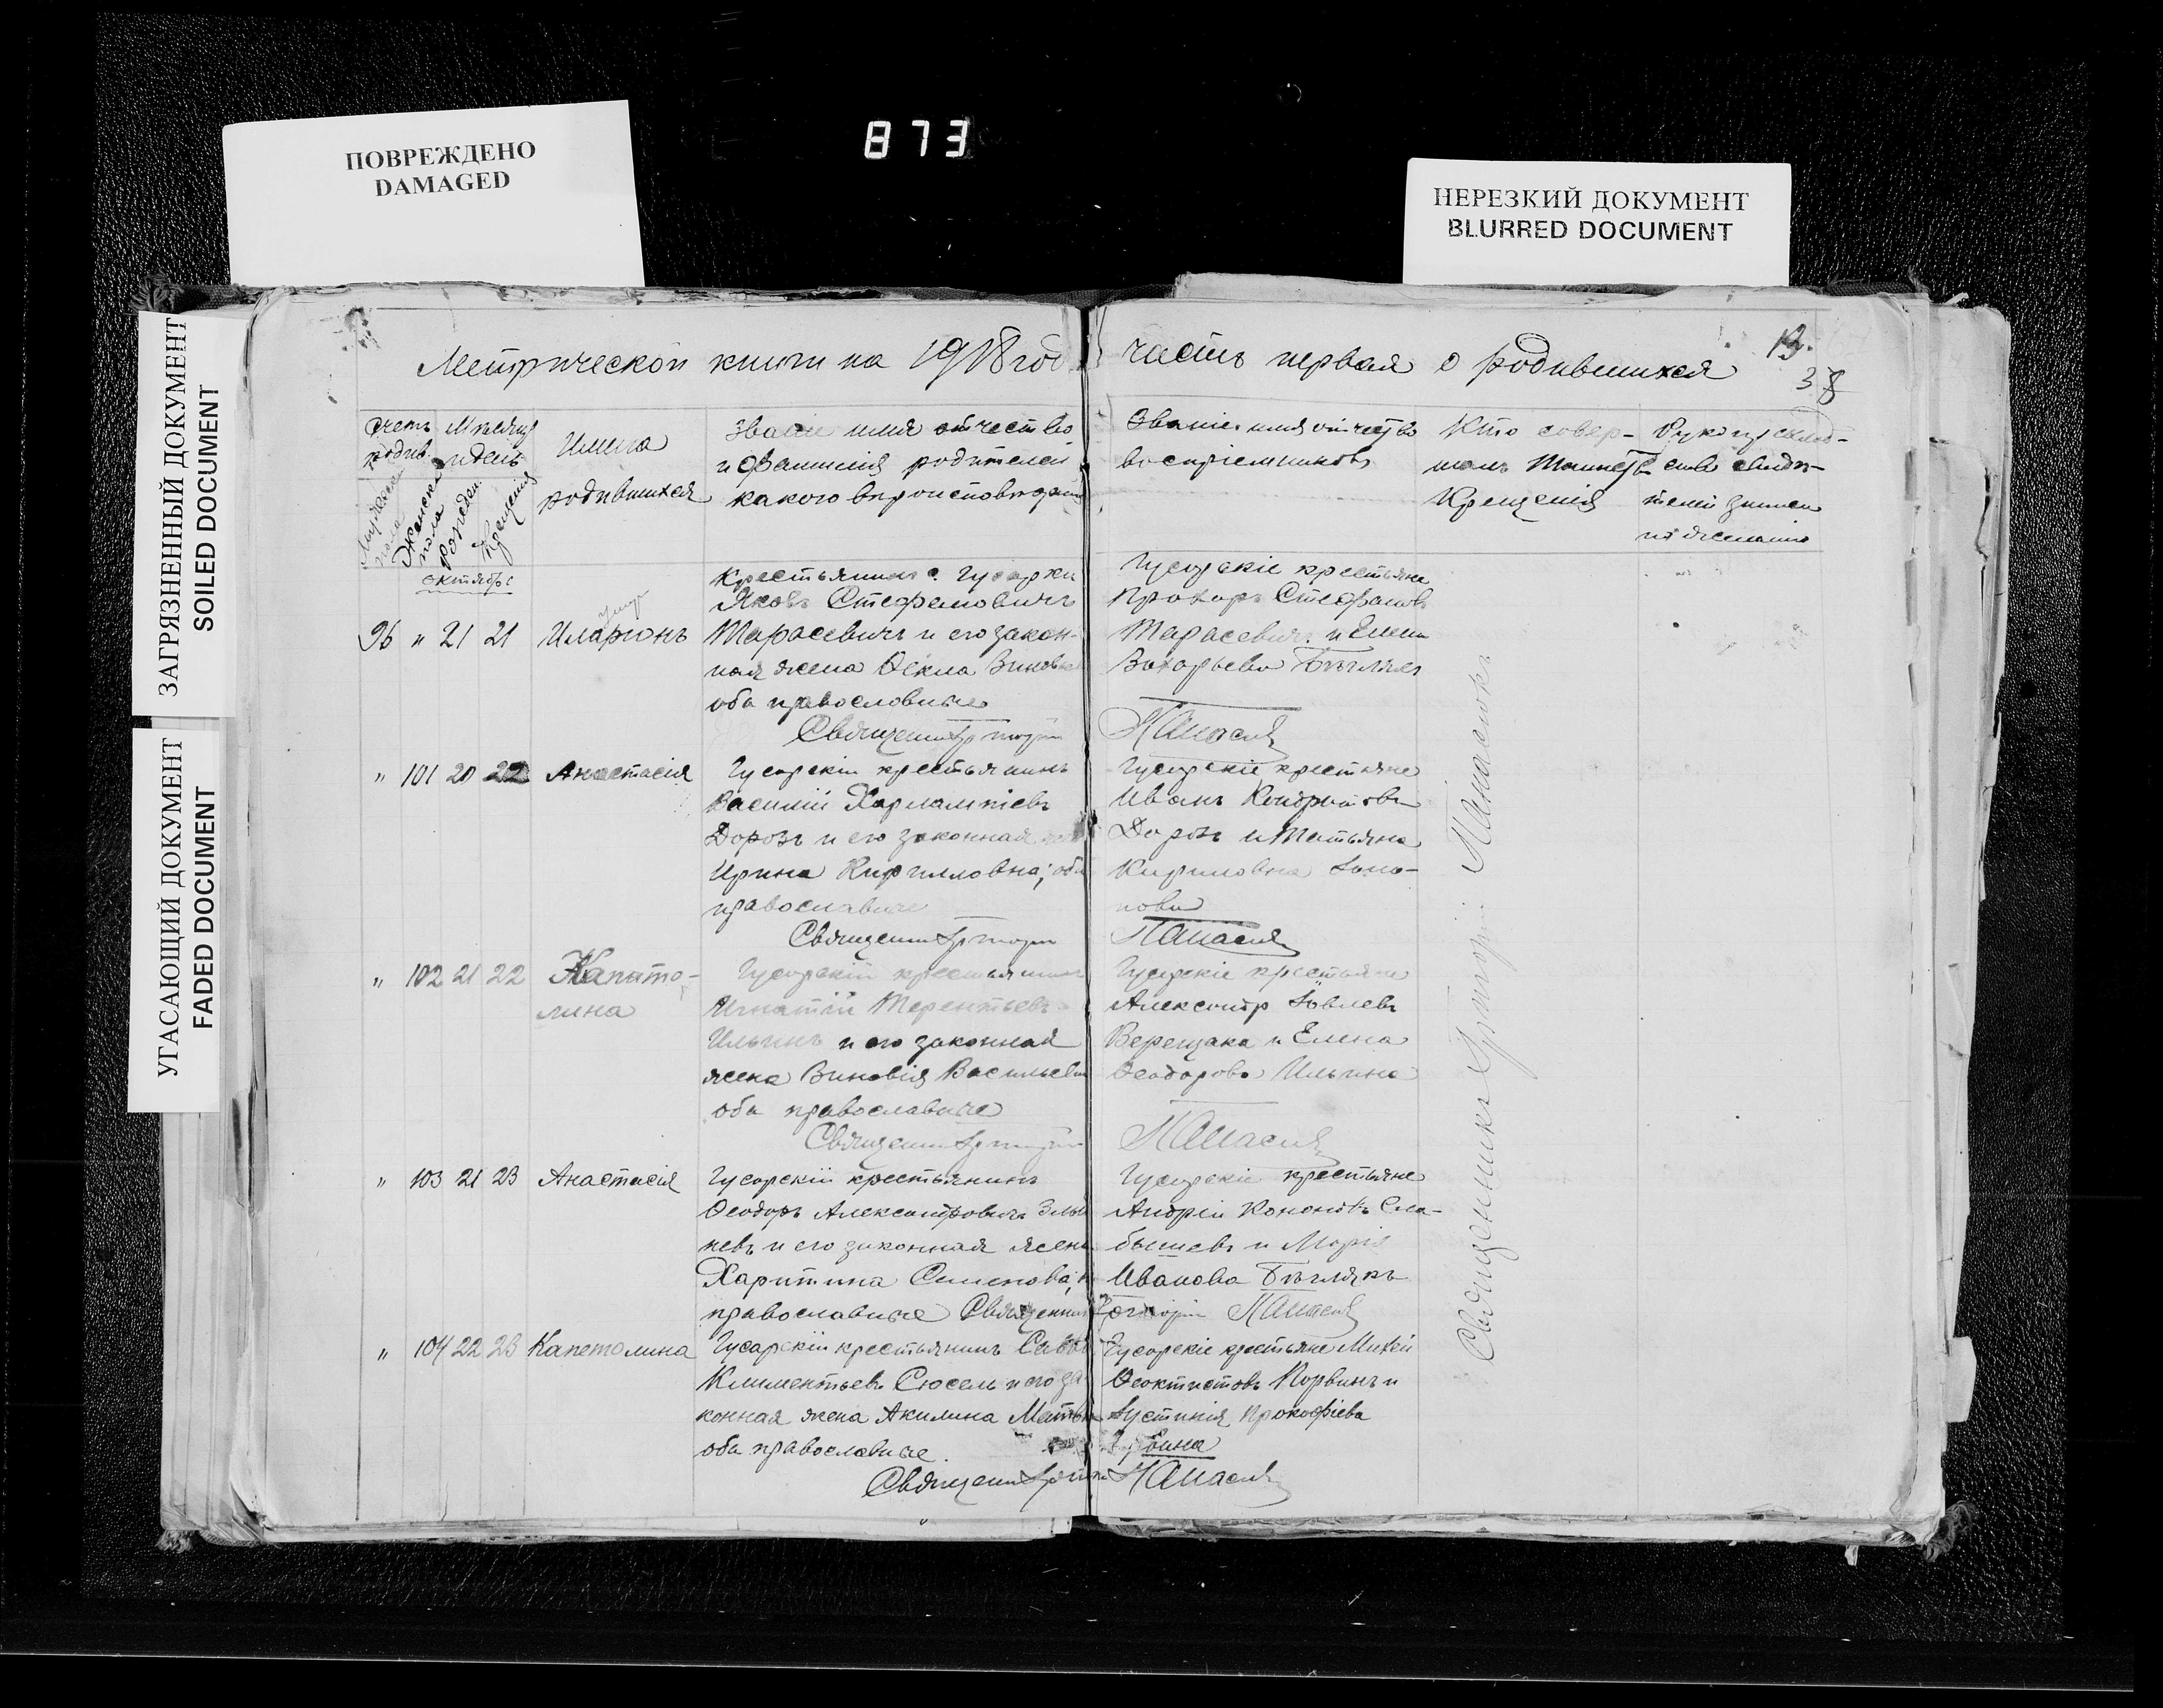 873
ПОВРЕЖДЕНО
DAMAGED
НЕРЕЗКИЙ ДОКУМЕНТ
BLURRED DOCUMENT
ЗАГРЯЗНЕННЫЙ ДОКУМЕНТ
SOILED DOCUMENT
УГАСАЮЩИЙ ДОКУМЕНТ
FADED DOCUMENT
Метрической книги на 1918 год
часть первая о родившихся
13.
38
Счетъ родив.
Мужеска пола
Женска пола
Мѣсяцъ и день
Рожден.
Крещенія
Имена
родившихся
Званіе имя отчество
и фамилія родителей
какого вѣроисповѣданія
Званіе имя отчество
воспріемниковъ
Кто совер-
шалъ Таинство
Крещенія
Рукоприклад-
ство свидѣ-
телей записи
по желанію
октябрь
96 " 21 21 Иларіонъ
умеръ
Крестьянинъ с. Гусарки
Яковъ Стефановичъ
Тарасевичъ и его закон-
ная жена Ѳекла Зиновьева
оба православные
Священник Григорій
Гусарскіе крестьяне
Прохоръ Стефановъ
Тарасевичъ и Елена
Захарьева Бѣгляк
Панасюк
" 101 20 22 Анастасія
Гусарскій крестьянинъ
Василій Харлампіевъ
Дорошъ и его законная жена
Ирина Кирилловна; оба
православные
Священник Григорій
Гусарскіе крестьяне
Иванъ Кондратовъ
Дорошъ и Татьяна
Кириловна
нова
Панасюк
" 102 21 22 Капито-
лина
Гусарскій крестьянинъ
Игнатій Терентьевъ
Ильинъ и его законная
жена Зиновія Васильева
оба православные
Священник Григорій
Гусарскіе крестьяне
Александр Іовлевъ
Верещака и Елена
Ѳеодорова Ильина
Панасюк
" 103 21 23 Анастасія
Гусарскій крестьянинъ
Ѳеодоръ Александровичъ
невъ и его законная жена
Харитина Семенова,
православные Священник
Гусарскіе крестьяне
Андрей Кононовъ Сла-
бышевъ и Марія
Иванова Бѣглякъ
Григорій Панасюк
" 104 22 23 Капетолина
Гусарскій крестьянинъ Савва
Климентьевъ Сюсель и его за-
конная жена Акилина
оба православные.
Священник Григорій
Гусарскіе крестьяне Михей
Ѳеоктистовъ Корвинъ и
Іустинія Прокофіева
Панасюк
Священникъ Григорій Панасюкъ